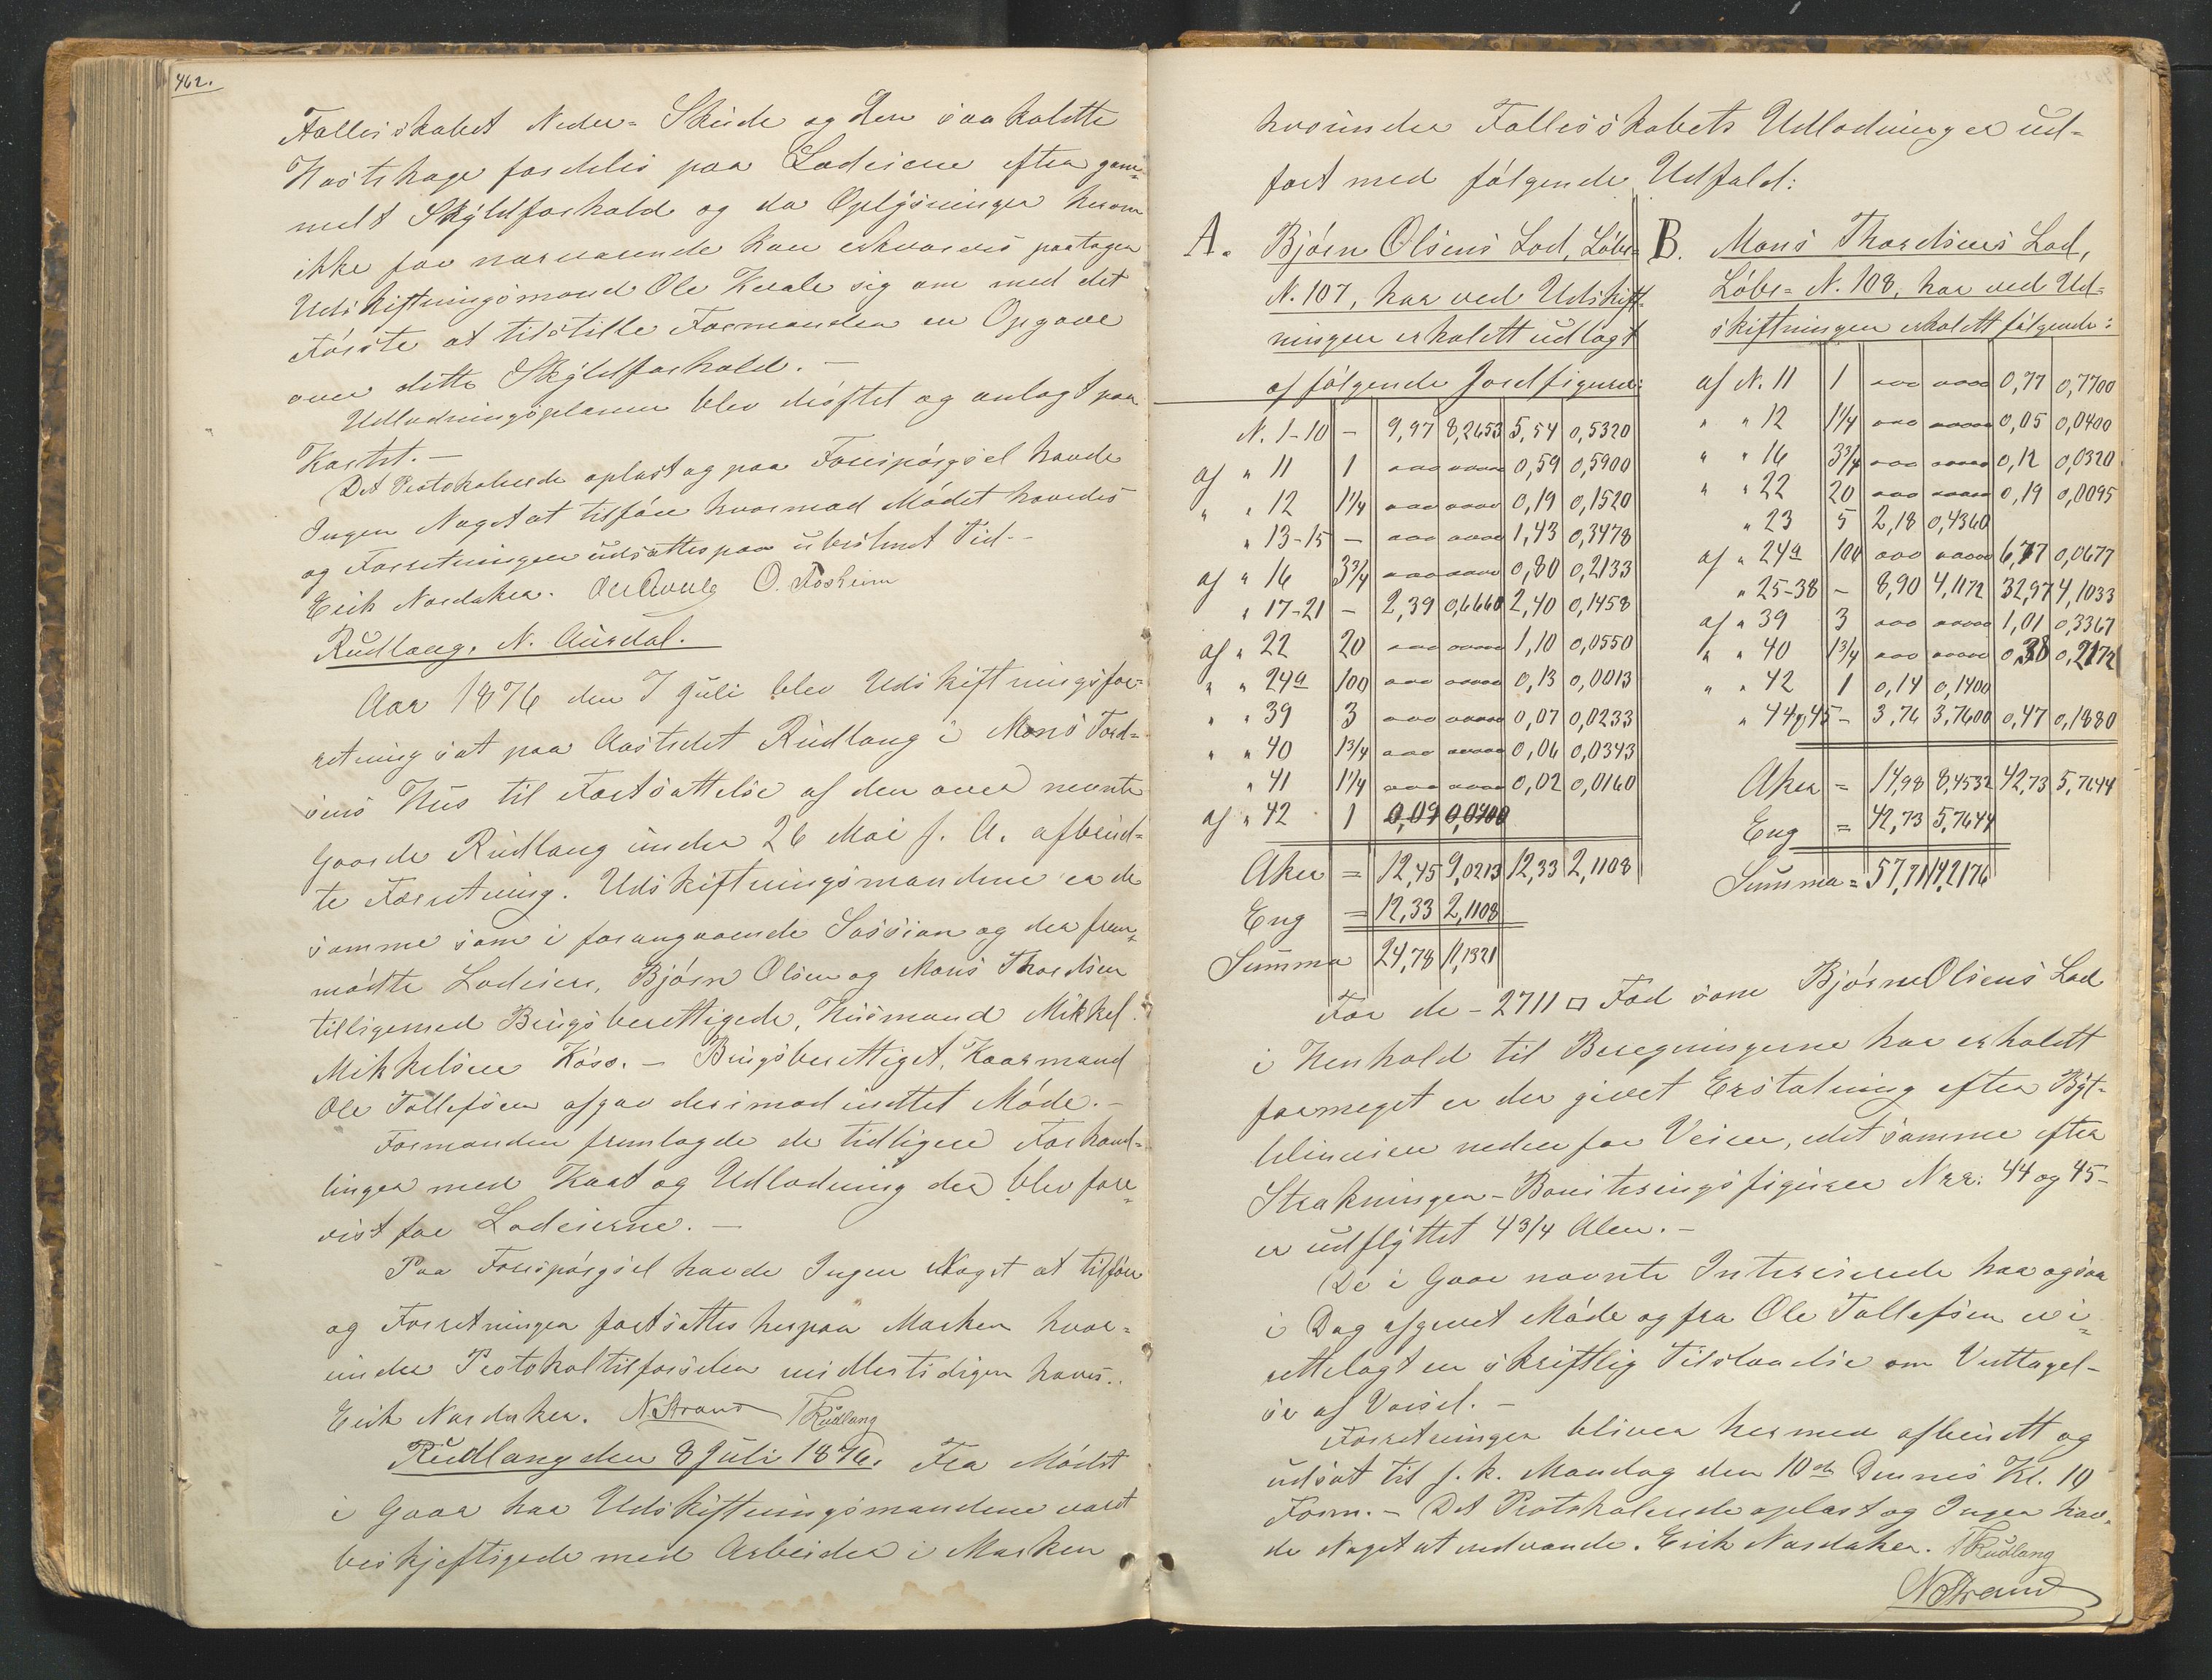 462.
Fællesskabet Nedre-Skeide og den saa kaldte
Hæstehage fordeles paa Lodeierne efter gam-
melt Skyldforhold og da Oplysninger herom
ikke for nærværende kan erhverves paatager
Udskiftningsmand Ole Kvale sig om med det
Første at tilstille Formanden en Opgave
over dette Skyldforhold. –
Udlodningsplanen blev drøftet og anlagt paa
Kartet. –
Det Protokolerede oplæst og paa Forespørgsel havde
Ingen Noget at tilføre hvormed Mødet hævedes
og Forretningen udsattes paa ubestemt Tid. –
Erik Nordaker. Ole Qvale O. Fosheim
Rudlang, N. Aurdal.
Aar 1876 den 7 Juli blev Udskiftningsfor-
retning sat paa Aastedet Rudlang i Mons Tord-
sens Hus til Fortsættelse af den over nevnte
Gaarde Rudlang under 26 Mai f. A. afbrud-
te Forretning. Udskiftningsmændene er de
samme som i forangaaende Session og der frem-
mødte Lodeiere, Bjørn Olsen og Mons Thordsen
tilligemed Brugsberettigede, Husmand Mikkel
Mikkelsen Køss. – Brugsberettiget, Kaarmand
Ole Tollefsen afgav derimod intet Møde. –
Formanden fremlagde de tidligere Forhand-
linger med Kart og Udlodning der blev fore-
vist for Lodeierne. –
Paa Forespørgsel havde Ingen Noget at tilføre
og Forretningen fortsattes herpaa Marken hvor-
under Protokoltilførselen midlertidigen hæves.
Erik Nordaker. NStrand TRudlang
Rudlang den 8 Juli 1876. Fra Mødet
i Gaar har Udskiftningsmændene været
beskjeftigede med Arbeider i Marken
hvorunder Fællesskabets Udlodninger ud-
ført med følgende Udfald:
A. Bjørn Olsens Lod, Løbe-
N. 107, har ved Udskift-
ningen erholdt udlagt
af følgende Jordfigurer:
N. 1-10 – 9,97 8,2653 5,54 0,5320
af " 11 1 ooo oooo 0,59 0,5900
" " 12 1 1/4 ooo oooo 0,19 0,1520
" 13-15 – ooo oooo 1,43 0,3478
af " 16 3 3/4 ooo oooo 0,80 0,2133
" 17-21 – 2,39 0,6660 2,40 0,1458
af " 22 20 ooo oooo 1,10 0,0550
" " 24a 100 ooo oooo 0,13 0,0013
" " 39 3 ooo oooo 0,07 0,0233
" " 40 1 3/4 ooo oooo 0,06 0,0343
" 41 1 1/4 ooo oooo 0,02 0,0160
af " 42 1 0,09 0,0900
Aker = 12,45 9,0213 12,33 2,1108
Eng = 12,33 2,1108
Summa 24,78 11,1321
B. Mons Thordsens Lod,
Løbe-N. 108, har ved Ud-
skiftningen erholdt følgende:
af N. 11 1 ooo oooo 0,77 0,7700
" " 12 1 1/4 ooo oooo 0,05 0,0400
" " 16 3 3/4 ooo oooo 0,12 0,0320
" " 22 20 ooo oooo 0,19 0,0095
" 23 5 2,18 0,4360
af " 24a 100 ooo oooo 6,77 0,0677
" 25-38 – 8,90 4,1172 32,97 4,1033
af " 39 3 ooo oooo 1,01 0,3367
" " 40 1 3/4 ooo oooo 0,38 0,2172
" " 42 1 0,14 0,1400
" 44g45 – 3,76 3,7600 0,47 0,1880
Aker = 14,98 8,4532 42,73 5,7644
Eng = 42,73 5,7644
Summa = 57,71 14,2176
For de – 2711 □ Fod som Bjørn Olsens Lod
i Henhold til Beregningerne har erholdt
formeget er der givet Erstatning efter Byt-
telinien neden for Veien, idet samme efter
Strækningen – Boniteringsfigurer Nrr: 44 og 45 –
er udflyttet 4 3/4 Alen. –
De i Gaar nævnte Interesserede har ogsaa
i Dag afgivet Møde og fra Ole Tollefsen er i-
rettelagt en skriftlig Tilstaaelse om Vedtagel-
se af Varsel. –
Forretningen bliver hermed afbrudt og
udsat til f. k. Mandag den 10de Dennes Kl. 10
Form. – Det Protokolerede oplæst og Ingen hav-
de Noget at indvende. Erik Nordaker. TRudlang
NStrand